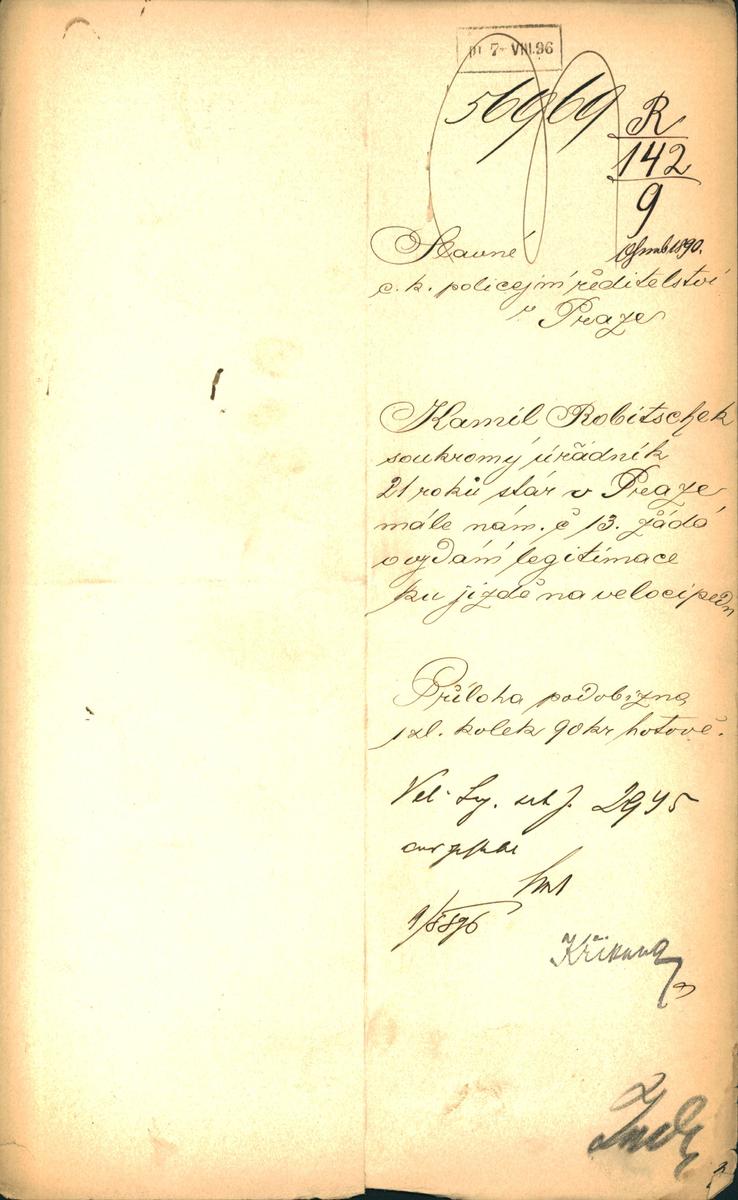 pr 7- VIII.96
56969
R
142
9
1890.
Slavné
c. k. policejní ředitelství
v Praze
Kamil Robitschek
soukromý úřádník
21 roků stár v Praze
málé nám. č 13. žádá
o vydání legitimace
ku jízdě na velocipedu
Příloha podobizna
1 zl. kolek 90 kr hotově.
Vel. Lg. sub J. 2945
9/8 896
Křikava